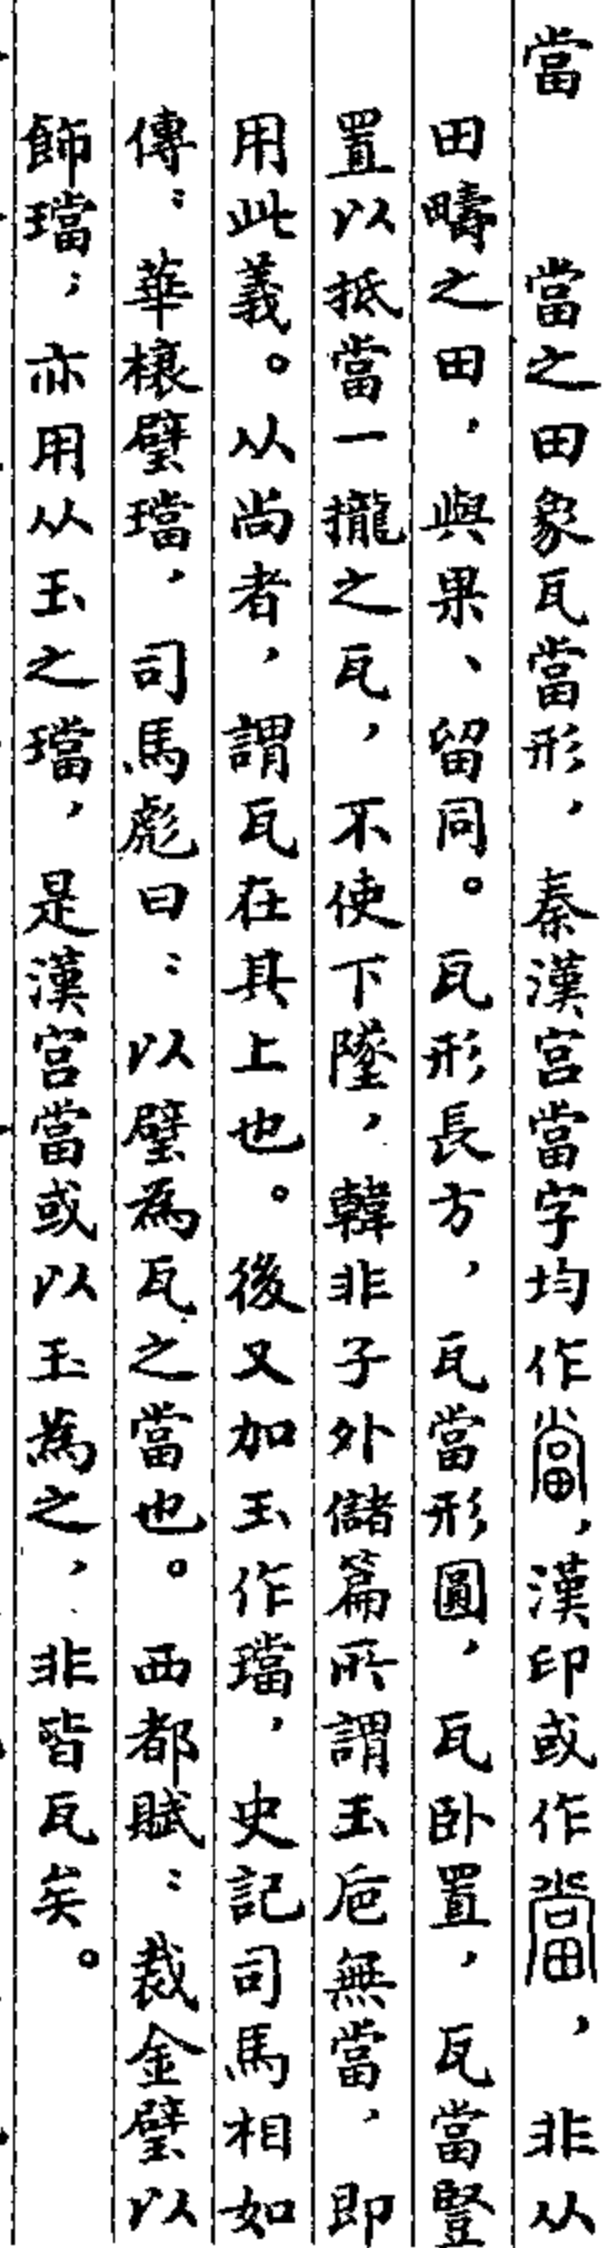 當　當之田象瓦當形，秦漢宮當字均作當，漢印或作當，非从
田疇之田，與果、留同。瓦形長方，瓦當形圓，瓦卧置，瓦當豎
置以抵當一攏之瓦，不使下墬，韓非子外儲篇所謂玉卮無當，即
用此義。从尚者，謂瓦在其上也。後又加玉作璫，史記司馬相如
傳：華榱璧璫，司馬彪曰：以璧為瓦之當也。西都賦：裁金璧以
飾璫；亦用从玉之璫，是漢宮當或以玉為之，非皆瓦矣。